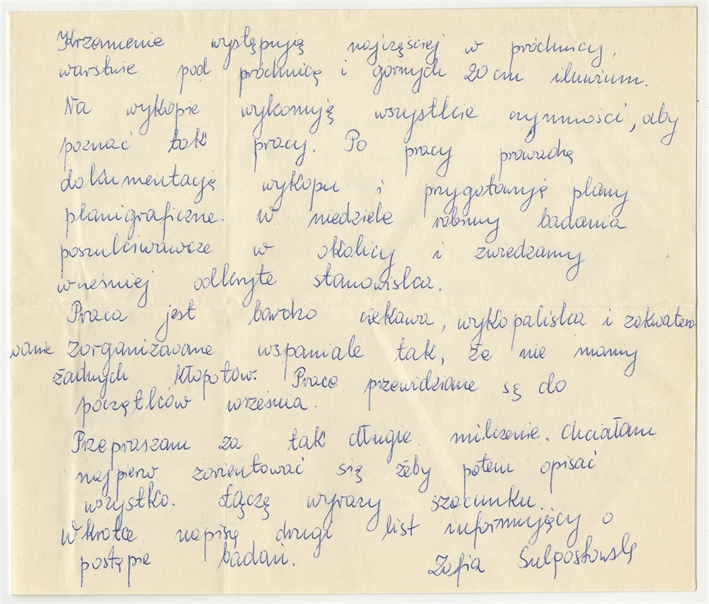 Krzemienie występują najczęściej w próchnicy,
warstwie pod próchnicą i górnych 20 cm iluwium.
Na wykopie wykonuję wszystkie czynności, aby
poznać tok pracy. Po pracy prowadzę
dokumentację wykopu i przygotowuję plany
planigraficzne. W niedziele robimy badania
poszukiwawcze w okolicy i zwiedzamy
wcześniej odkryte stanowiska.
Praca jest bardzo ciekawa, wykopaliska i zakwatero
wanie zorganizowane wspaniale tak, że nie mamy
żadnych kłopotów. Prace przewidziane są do
początków września.
Przepraszam za tak długie milczenie. Chciałam
najpierw zorientować się żeby potem opisać
wszystko. Łączę wyrazy szacunku.
Wkrótce napiszę drugi list informujący o
postępie badań. Zofia Sulgostowska